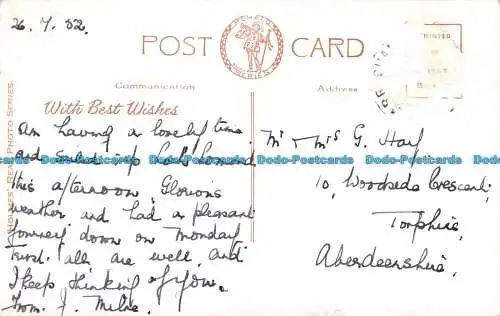 26.7.52.
HERALD
SERIES
POST CARD
Communication
Address
PRINTED
With Best Wishes
HOLMES' REAL PHOTO SERIES.
Am having a lovely time
and sailed up Loch Lomond
this afternoon. Glorious
weather and had a pleasant
journey down on Monday
Trust all are well and
I keep thinking of you.
From J. Milne.
Mr + Mrs G. Hay
10, Woodside Crescent,
Torphins,
Aberdeenshire.
Dodo-Postcards Dodo-Postcards Dodo-Postcards Dodo-Postcards Dodo-Postcards